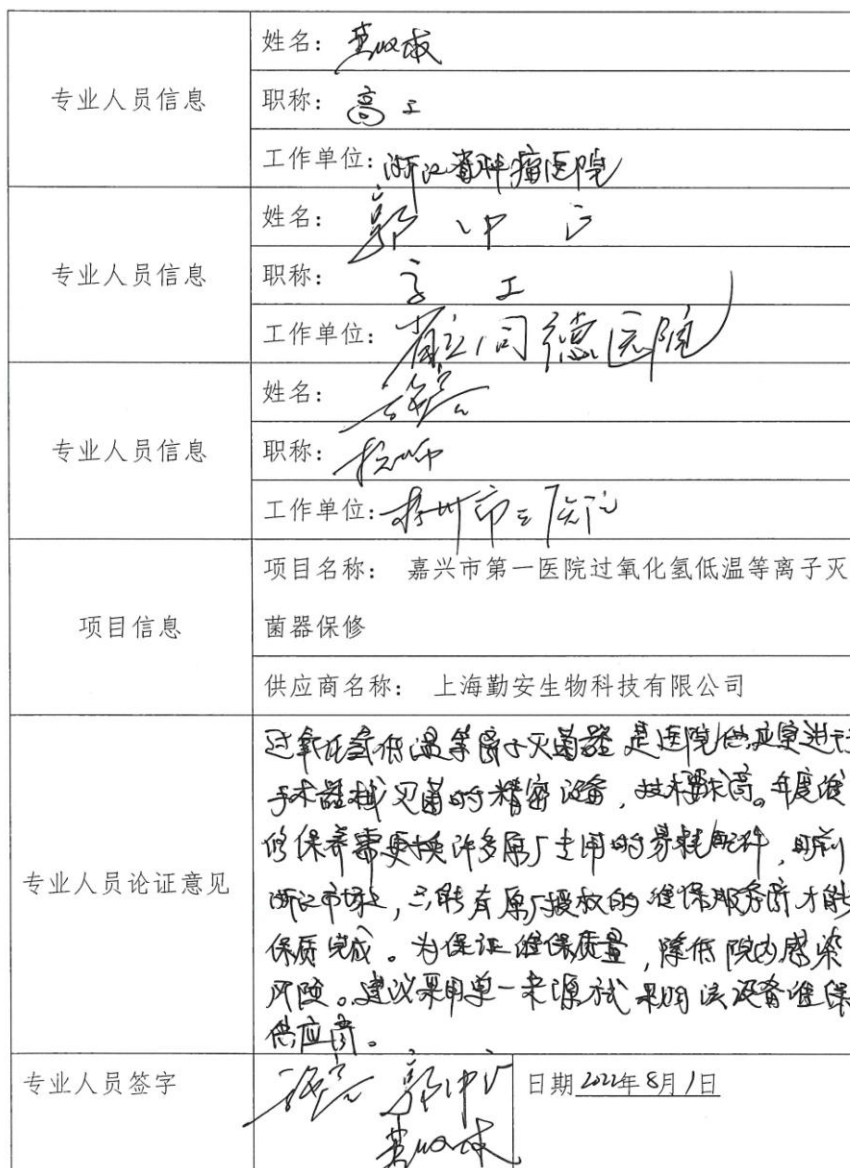 专业人员信息
姓名：
职称：高工
工作单位：浙江省肿瘤医院
专业人员信息
姓名：郭中
职称：高工
工作单位：省立同德医院
专业人员信息
姓名：
职称：技师
工作单位：杭州市三医院
项目信息
项目名称： 嘉兴市第一医院过氧化氢低温等离子灭
菌器保修
供应商名称： 上海勤安生物科技有限公司
专业人员论证意见
过氧化氢低温等离子灭菌器是医院供应室进行
手术器械灭菌的精密设备，技术要求高。年度维
修保养需更换许多原厂专用的易耗配件，目前
浙江市场上，只能有原厂授权的维保服务商才能
保质完成。为保证维保质量，降低院内感染
风险。建议采用单一来源 采购该设备维保
供应商。
专业人员签字
日期2022年8月1日